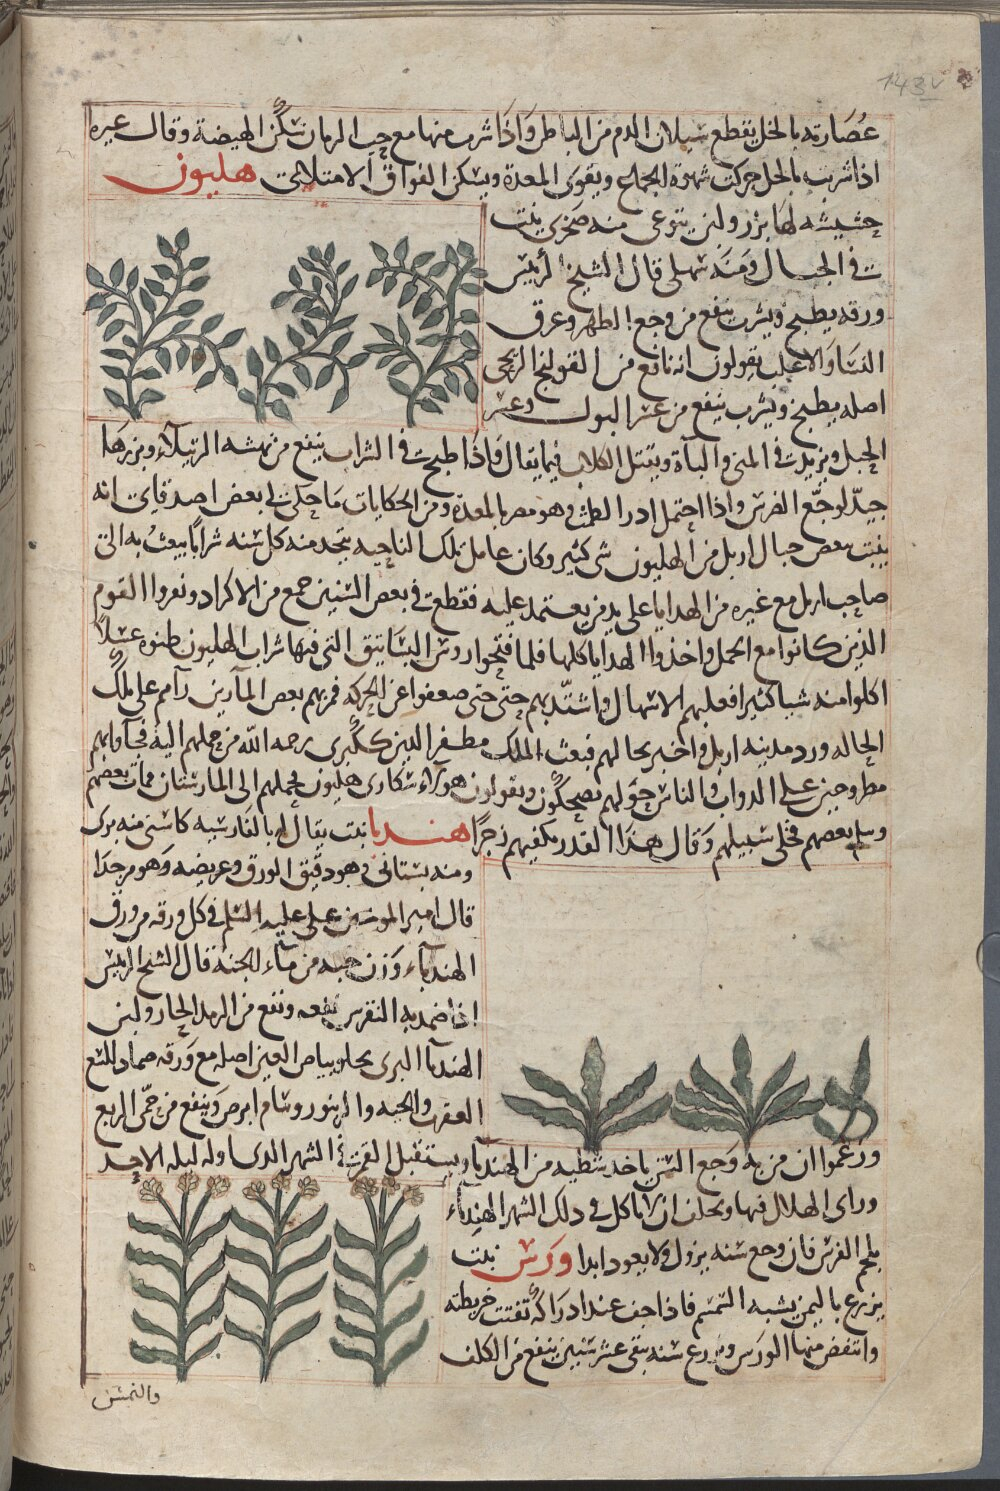 143v
عُصَارته بالخل يقطع سيلان الدم من الباطن واذا شرب منها مع حب الرمان سكن الهيضة وقال غيره
اذا شرب بالخل حركت شهوة الجماع ويقوى المعدة ويسكن الفواق الامتلائى هليون
حشيشه لها بزر ولبن يتوعى منه صخرى ينبت
ت فى الجبال ومنه سهلى قال الشيخ الرئيس
ورقه يطبخ ويشرب ينفع من وجع الظهر وعرق
النسا والاغلب يقولون انه نافع من القولنج الريحى
اصله يطبخ ويشرب ينفع من عسر البول وعسر
الحبل ويزيدت فى المنى والباة ويقتل الكلاب فيما يقال واذا طبخت فى الشراب ينفع من نهشه الرتيلاء وبزرها
جيدّ لوجَع الضرس واذا احتمل ادر الطمث وهو مضر بالمعدة ومن الحكايات مَا حكى لى بعض اصدقاى انه
ينبت ببعض جبال اربل من الهليون شى كثير وكان عامل تلك الناحيه يتخد منه كل سنه شرابًا يبعثُ به الى
صاحب اربل مع غيره من الهدايا على يد من يعتمد عليه فقطع فى بعض السنين جمع من الاكراد ونفروا القوم
الذين كانوا مع الحمل واخذوا الهدايا كلها فلما فتحوا روس البساتيق التى فيها شراب الهليون ظنوه عسَلاً
اكلوا منه شيا كثيرا فعلبهم الاسهال واشتدّ بهم حتى حتى ضعفوا عن الحركه فمر بهم بعض المارين رآهم على تلكَ
الحاله ورد مدينه اربل واخبر بحالهم فبعث الملك مظفر الدين ككبرى رحمه الله من حملهم اليه فجآوا بهم
مطروحين على الدواب والناس حولهم يضحكون ويقولون هولآء سكارى هليون فحملهم الى المارستان فمات بعضهم
وسلم بعضهم فخلى سبيلهم وَقال هذا القدر يكفيهم زجرًا هندبا نبت يقال له بالفارسيه كاسنى منه برى
ومنه بستانى وهو دقيق الورق وعريضه وهو مر جدا
قال امير المومنين على عليه السلم فى كل ورقه من ورق
الهندبآء وَزن حبه من مآء الجنة قال الشيخ الرئيس
اذا ضمد به النقرس نفعه ونفع من الرمد الحار ولبن
الهندبا البرى يجلو بياض العين اصله مع وَرقه ضماد للسع
العقرب والحيه والزنبور وسام ابرص وَينفع من حمّى الربع
وزعموا ان من به وَجع السن ياخد شظيه من الهندبا ويستقبل القمر فى الشهر الدى اوله ليله الاحد
وراى الهلال فيها ويحلف ان لا ياكل فى دلك الشهر الهندباء
بلحم الفرس فان وجع سنه يزول ولا يعود ابدا وَرسْ نبت
يزرع باليمن يشبه السمسم فاذا جف عند ادراكه تفتت خريطته
وانتفض منها الورس ويزرع سنه يبقى عشر سنين ينفع من الكلف
والنمش